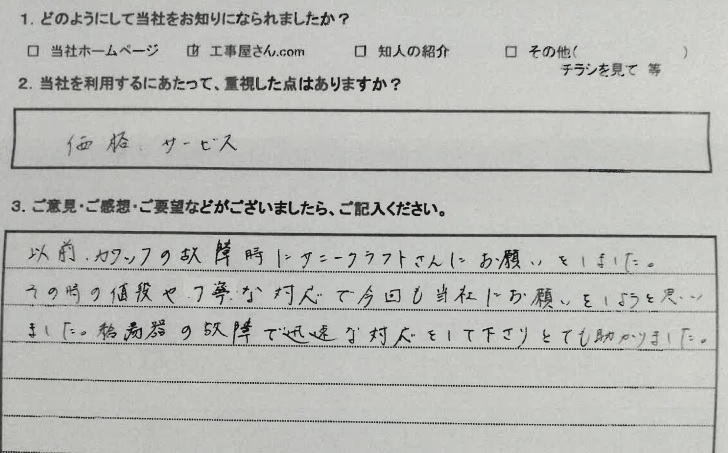 1. どのようにして当社をお知りになられましたか？
□ 当社ホームページ ☑ 工事屋さん.com □ 知人の紹介 □ その他( )
チラシを見て 等
2. 当社を利用するにあたって、重視した点はありますか？
価格、サービス
3. ご意見・ご感想・ご要望などがございましたら、ご記入ください。
以前、カランの故障時にサニークラフトさんにお願いをしました。
その時の値段や丁寧な対応で今回も当社にお願いをしようと思い
ました。給湯器の故障で迅速な対応をして下さりとても助かりました。